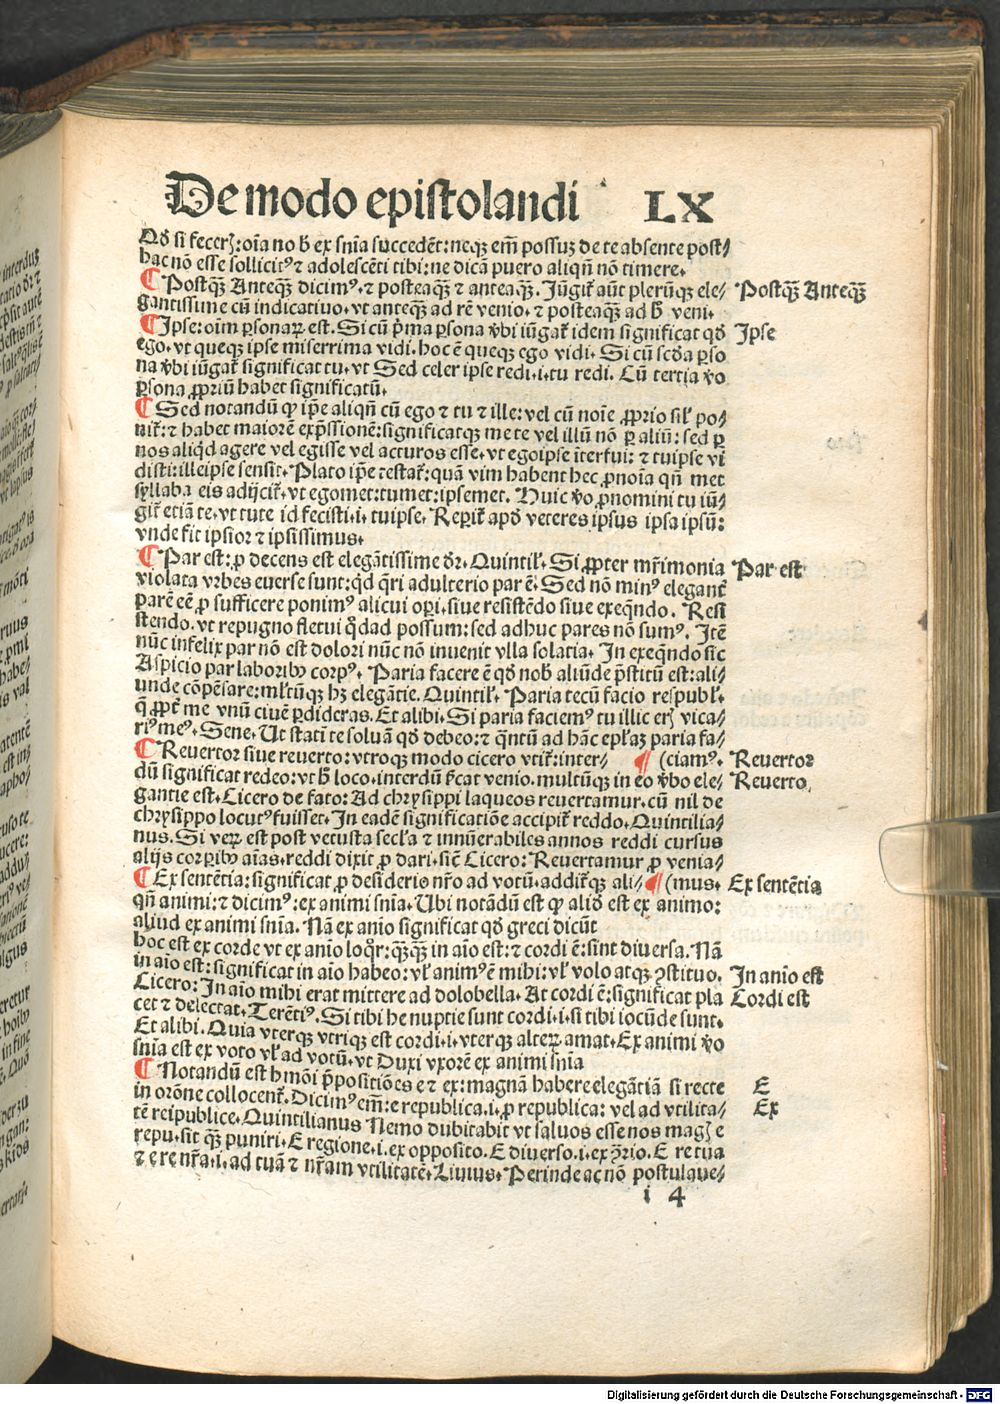 De modo epistolandi LX
Qđ si fecerꝫ: oīa no b̄ ex sn̄ia succedēt: neqꝫ em̄ possuꝫ de te absente post/
hac nō esse sollicitꝰ ⁊ adolescēti tibi: ne dicā puero aliqn̄ nō timere.
Postqꝫ̄ Anteqꝫ̄ dicimꝰ. ⁊ posteaqꝫ̄ ⁊ anteaqꝫ̄. Jūgit̄ aūt plerūqꝫ ele/ Postqꝫ̄ Anteqꝫ̄
gantissime cū indicatiuo. vt anteqꝫ̄ ad rē venio. ⁊ posteaqꝫ̄ ad b̄ veni.
Jpse: oīm ꝑsonaꝝ est. Si cū p̄ma ꝑsona v̄bi iūgat̄ idem significat qđ Jpse
ego. vt queqꝫ ipse miserrima vidi. hoc ē queqꝫ ego vidi. Si cū scđa ꝑso
na v̄bi iūgat̄ significat tu. vt Sed celer ipse redi. i. tu redi. Cū tertia v̄o
ꝑsona ꝓpriū habet significatū.
Sed notandū ꝙ ip̄e aliqn̄ cū ego ⁊ tu ⁊ ille: vel cū noīe ꝓprio sil̄ po/
nit̄: ⁊ habet maiorē exp̄ssionē: significatqꝫ me te vel illū nō ꝑ aliū: sed ꝑ
nos aliqd̄ agere vel egisse vel acturos esse. vt egoipse īterfui: ⁊ tuipse vi
disti: illeipse sensit. Plato ip̄e testat̄: quā vim habent hec ꝓnoīa qn̄ met
syllaba eis adijcit̄. vt egomet: tumet: ipsemet. Huic v̄o ꝓnomini tu iū/
git̄ etiā te. vt tute id fecisti. i. tuipse. Reꝑit̄ apđ veteres ipsus ipsa ipsū:
vnde fit ipsior ⁊ ipsissimus.
Par est: ꝓ decens est elegātissime dr̄. Quintil̄. Si ꝓpter mr̄imonia Par est
violata vrbes euerse sunt: qd̄ q̄ri adulterio par ē. Sed nō minꝰ elegant̄
parē eē ꝓ sufficere ponimꝰ alicui oꝑi. siue resistēdo siue exeq̄ndo. Resi
stendo. vt repugno fletui q̄dad possum: sed adhuc pares nō sumꝰ. Jtē
nūc infelix par nō est dolori nūc nō inuenit vlla solatia. Jn exeq̄ndo sic
Aspicio par laboribꝰ corpꝰ. Paria facere ē qđ nob̄ aliūde p̄stitū est: ali/
unde cōpēsare: ml̄tūqꝫ hꝫ elegātie. Quintil̄. Paria tecū facio respubl̄.
q̄ ꝓpt̄ me vnū ciuē ꝑdideras. Et alibi. Si paria faciemꝰ tu illic erꝫ vica/
riꝰ meꝰ. Sene. Ut statī te soluā qđ debeo: ⁊ q̄ntū ad hāc epl̄aꝫ paria fa/
Reuertor siue reuerto: vtroqꝫ modo cicero vtit̄: inter/ (ciamꝰ. Reuertor
dū significat redeo: vt b̄ loco. interdū f̄cat venio. multūqꝫ in eo v̄bo ele/ Reuerto.
gantie est. Cicero de fato: Ad chrysippi laqueos reuertamur. cū nil de
chrysippo locutꝰ fuisset. Jn eadē significatiōe accipit̄ reddo. Quintilia/
nus. Si veꝝ est post vetusta secl̄a ⁊ innūerabiles annos reddi cursus
alijs corꝑibꝰ aīas. reddi dixit ꝓ dari. sicc̄ Cicero: Reuertamur ꝓ venia/
Ex sentētia: significat ꝓ desiderio nr̄o ad votū. addit̄qꝫ ali/ (mus. Ex sentētia
qn̄ animi: ⁊ dicimꝰ: ex animi sn̄ia. Ubi notādū est ꝙ aliđ est ex animo:
aliud ex animi sn̄ia. Nā ex anio significat qđ greci dicūt
hoc est ex corde vt ex anīo loq̄r: qꝫ̄qꝫ in aīo est: ⁊ cordi ē: sint diuersa. Nā
in aīo est: significat in aīo habeo: vl̄ animꝰ ē mihi: vl̄ volo atqꝫ ꝯstituo. Jn anīo est
Cicero: Jn aīo mihi erat mittere ad dolobella. At cordi ē: significat pla Cordi est
cet ⁊ delectat. Terētiꝰ. Si tibi he nuptie sunt cordi. i. si tibi iocūde sunt.
Et alibi. Quia vterqꝫ vtriqꝫ est cordi. i. vterqꝫ alteꝝ amat. Ex animi v̄o
sn̄ia est ex voto vl̄ ad votū. vt Duxi vxorē ex animi sn̄ia
Notandū est hmōi p̄positiōes e ⁊ ex: magnā habere elegātiā si recte E
in orōne collocent̄. Dicimꝰ em̄: e republica. i. ꝓ republica: vel ad vtilita/ Ex
tē reipublice. Quintilianus Nemo dubitabit vt saluos esse nos magꝫ e
repu. sit qꝫ̄ puniri. E regione. i. ex opposito. E diuerso. i. ex ꝯ̄rio. E re tua
⁊ e re nr̄a. i. ad tuā ⁊ nr̄am vtilitatē. Liuius. Perinde ac nō postulaue/
i 4
Digitalisierung gefördert durch die Deutsche Forschungsgemeinschaft - DFG